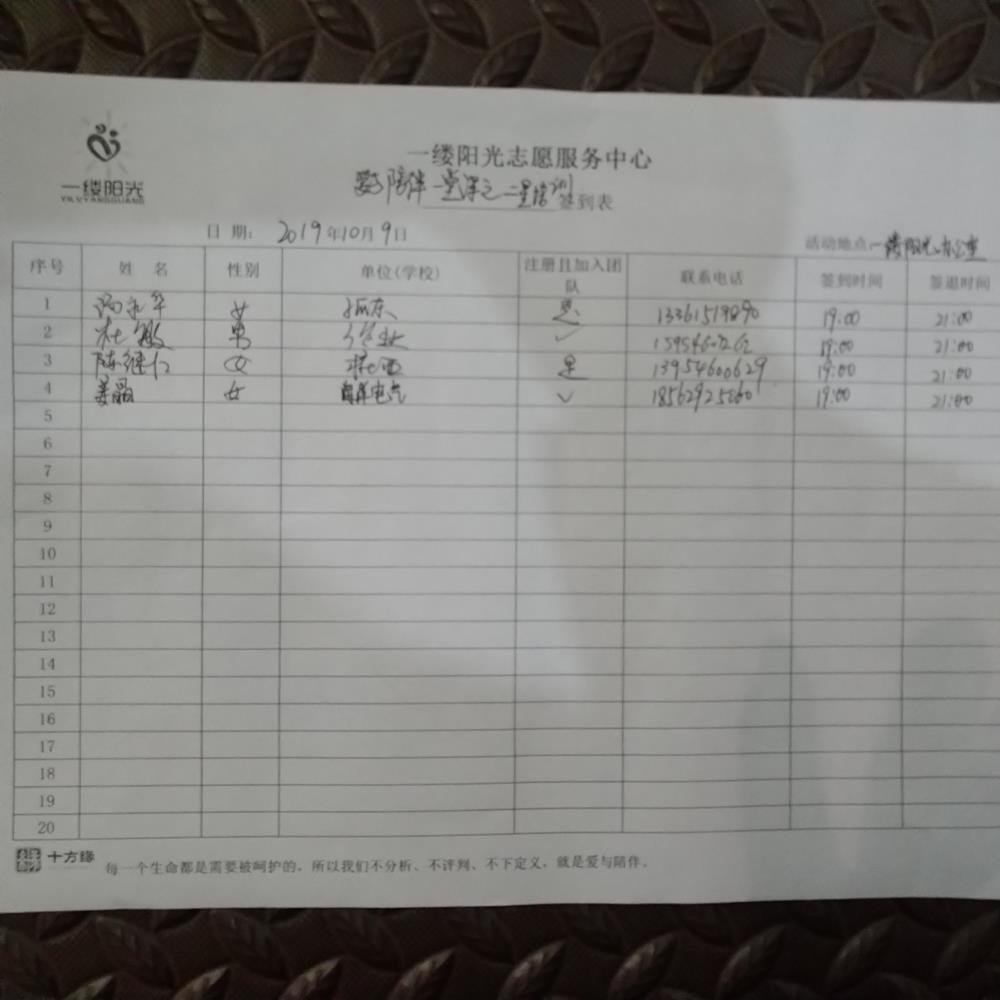 一缕阳光志愿服务中心
一缕阳光
YILVYANGGUANG
陪伴一堂课之二星培训签到表
日 期: 2019年10月9日
活动地点 一缕阳光办公室
序号 姓 名 性别 单位(学校) 注册且加入团队 联系电话 签到时间 签退时间
1 女 孤东 是 13361519890 19:00 21:00
2 杜敏 男 个体业 ✓ 19:00 21:00
3 陈继仁 女 是 13954600629 19:00 21:00
4 姜晶 女 海洋电气 ✓ 19:00 21:00
5
6
7
8
9
10
11
12
13
14
15
16
17
18
19
20
十方缘 每一个生命都是需要被呵护的,所以我们不分析、不评判、不下定义,就是爱与陪伴。